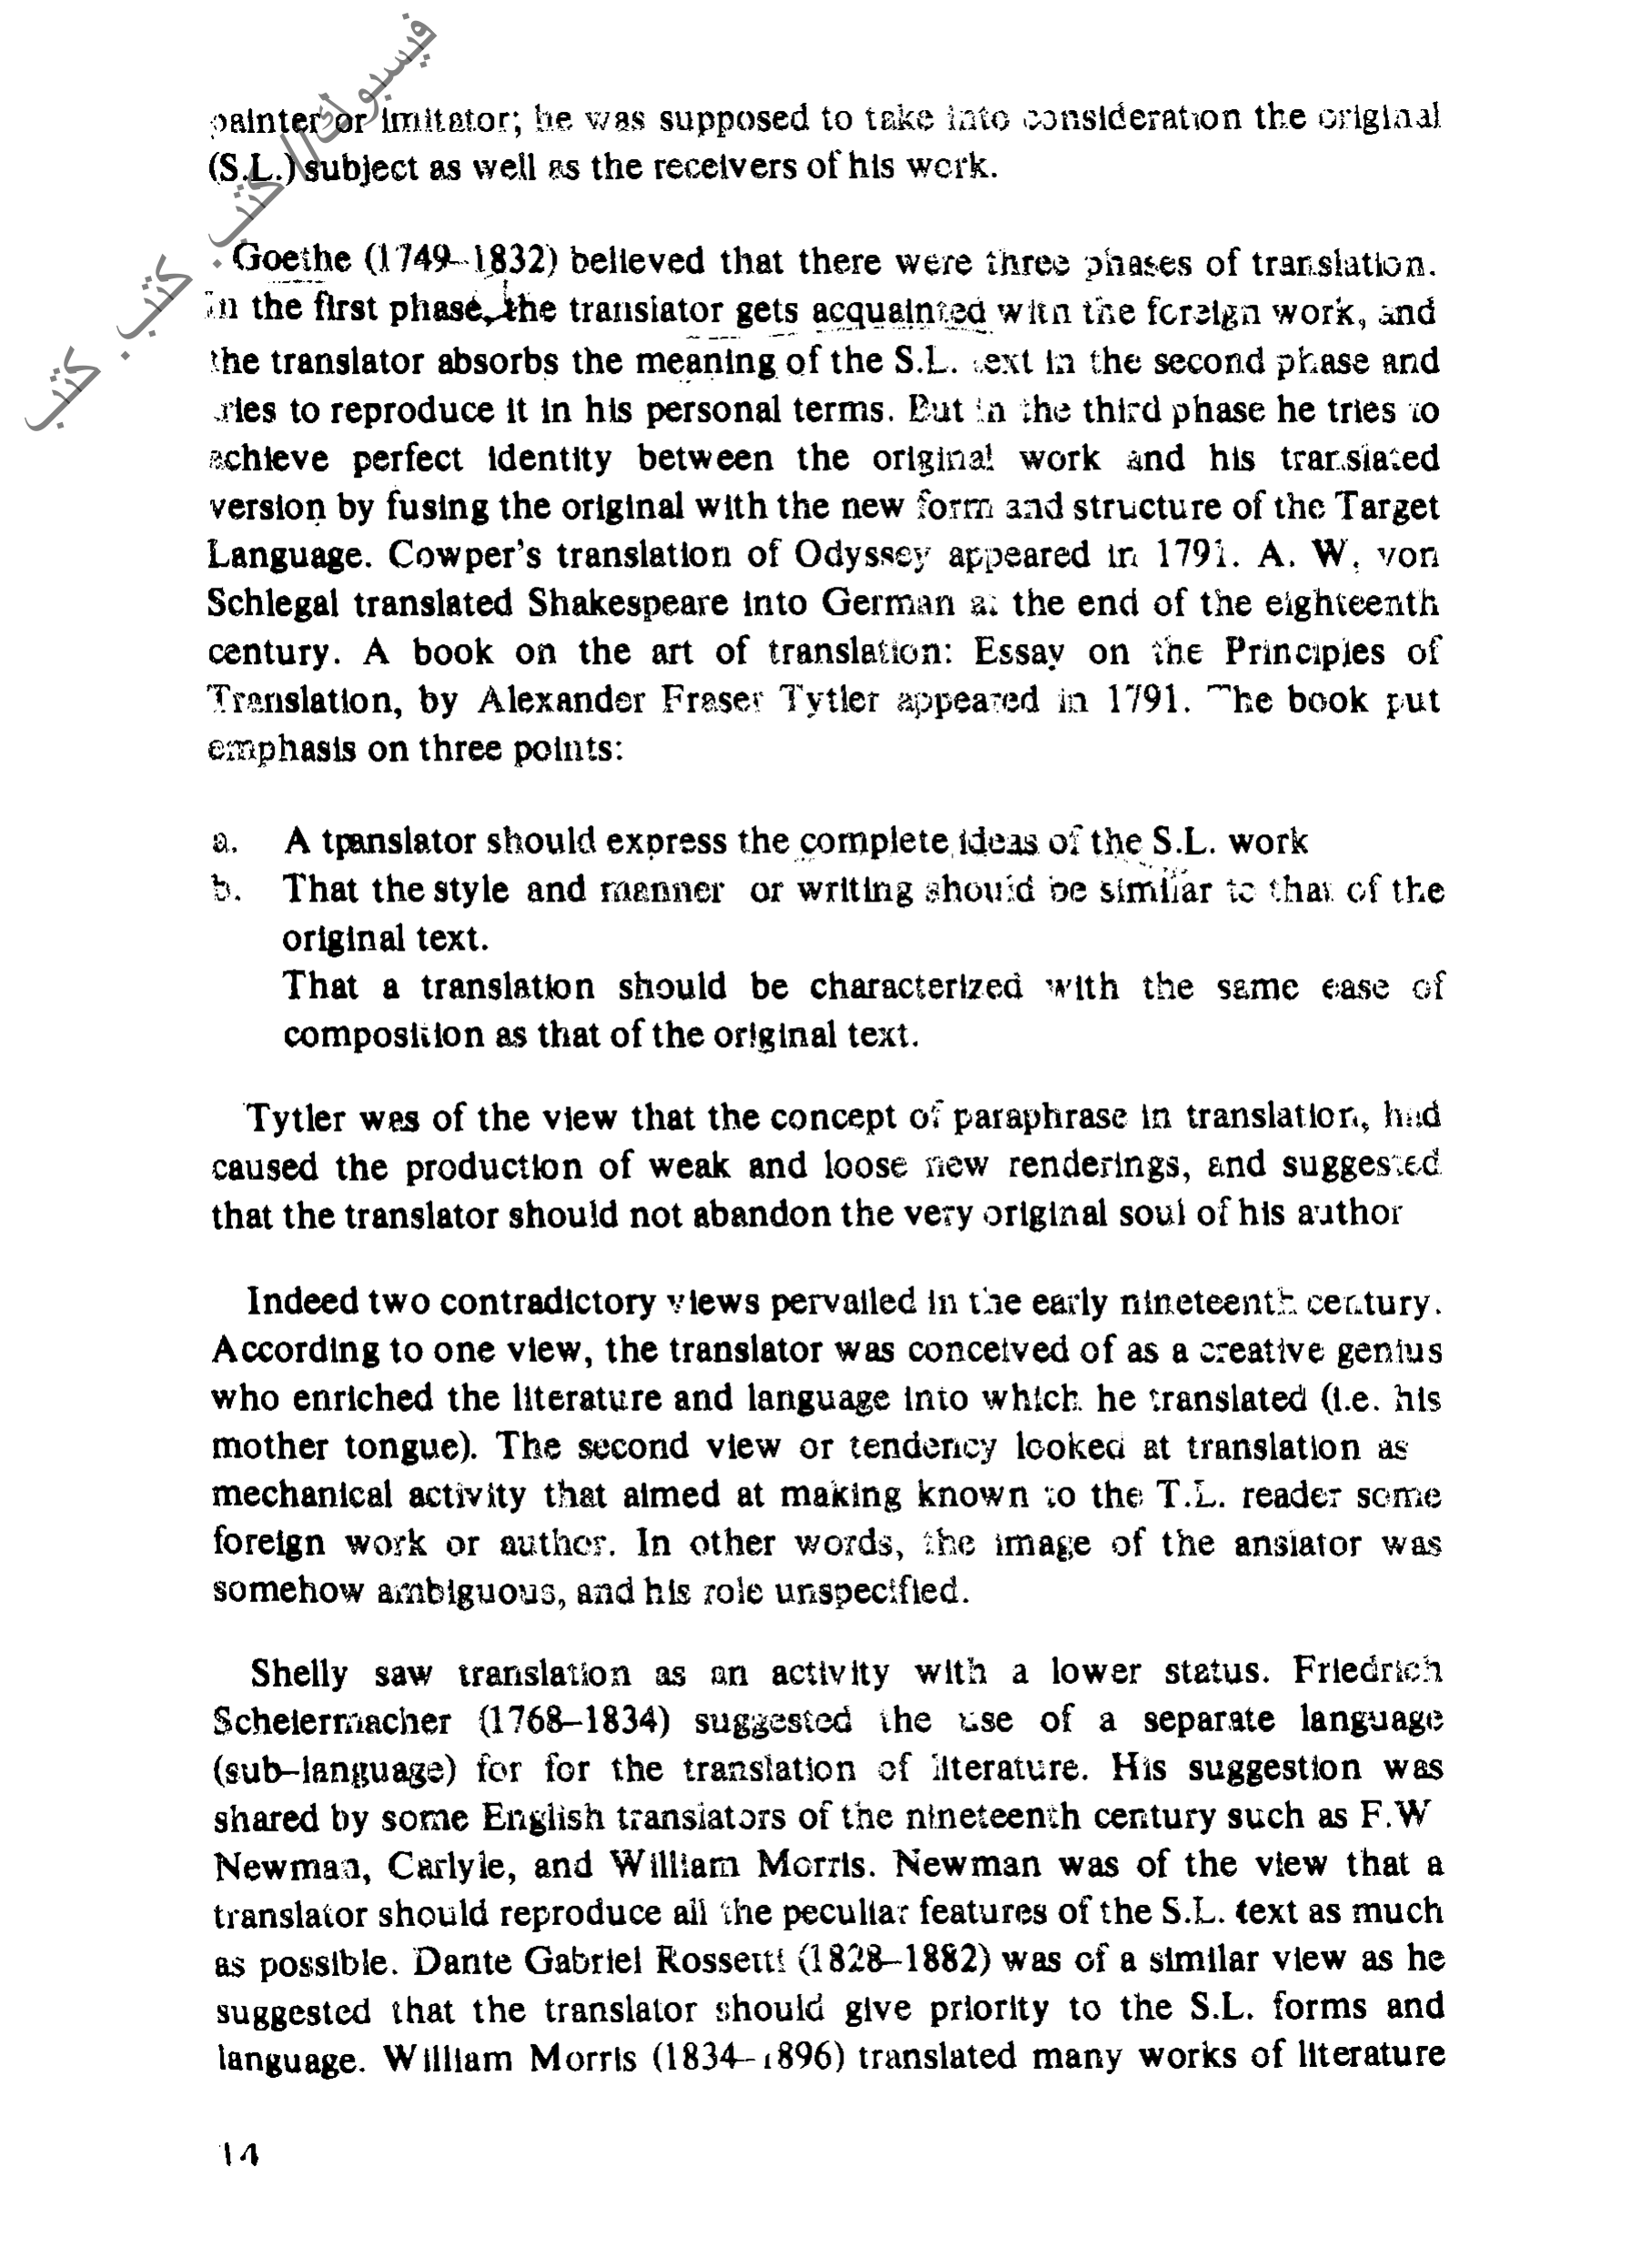 فيسبوك // كتب . كتب . كتب
painter or imitator; he was supposed to take into consideration the original
(S.L.) subject as well as the receivers of his work.
Goethe (1749–1832) believed that there were three phases of translation.
In the first phase, the translator gets acquainted with the foreign work, and
the translator absorbs the meaning of the S.L. text in the second phase and
tries to reproduce it in his personal terms. But in the third phase he tries to
achieve perfect identity between the original work and his translated
version by fusing the original with the new form and structure of the Target
Language. Cowper's translation of Odyssey appeared in 1791. A. W. von
Schlegal translated Shakespeare into German at the end of the eighteenth
century. A book on the art of translation: Essay on the Principles of
Translation, by Alexander Fraser Tytler appeared in 1791. The book put
emphasis on three points:
a. A tpanslator should express the complete ideas of the S.L. work
b. That the style and manner or writing should be similar to that of the
original text.
That a translation should be characterized with the same ease of
composition as that of the original text.
Tytler was of the view that the concept of paraphrase in translation, had
caused the production of weak and loose new renderings, and suggested
that the translator should not abandon the very original soul of his author
Indeed two contradictory views pervailed in the early nineteenth century.
According to one view, the translator was conceived of as a creative genius
who enriched the literature and language into which he translated (i.e. his
mother tongue). The second view or tendency looked at translation as
mechanical activity that aimed at making known to the T.L. reader some
foreign work or author. In other words, the image of the anslator was
somehow ambiguous, and his role unspecified.
Shelly saw translation as an activity with a lower status. Friedrich
Scheiermacher (1768–1834) suggested the use of a separate language
(sub–language) for for the translation of literature. His suggestion was
shared by some English translators of the nineteenth century such as F.W
Newman, Carlyle, and William Morris. Newman was of the view that a
translator should reproduce all the peculiar features of the S.L. text as much
as possible. Dante Gabriel Rossetti (1828–1882) was of a similar view as he
suggested that the translator should give priority to the S.L. forms and
language. William Morris (1834–1896) translated many works of literature
14